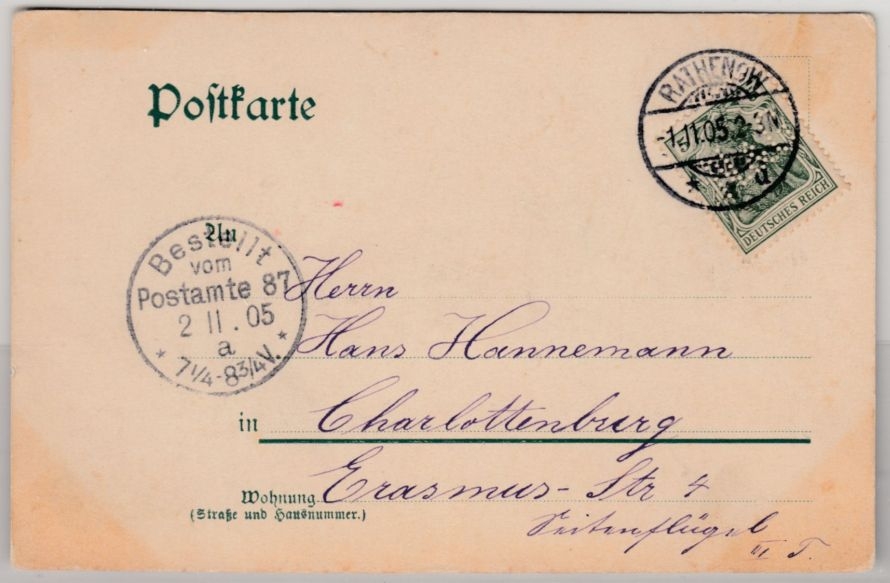 Postkarte
RATHENOW
-1.11.05.2-3N
* a *
DEUTSCHES REICH
An
Bestellt
vom
Postamte 87
2 11 . 05
a
* 7 1/4-8 3/4 V. *
Herrn
Hans Hannemann
in Charlottenburg
Wohnung Erasmus-Str 4
(Straße und Hausnummer.)
Seitenflügel
III T.